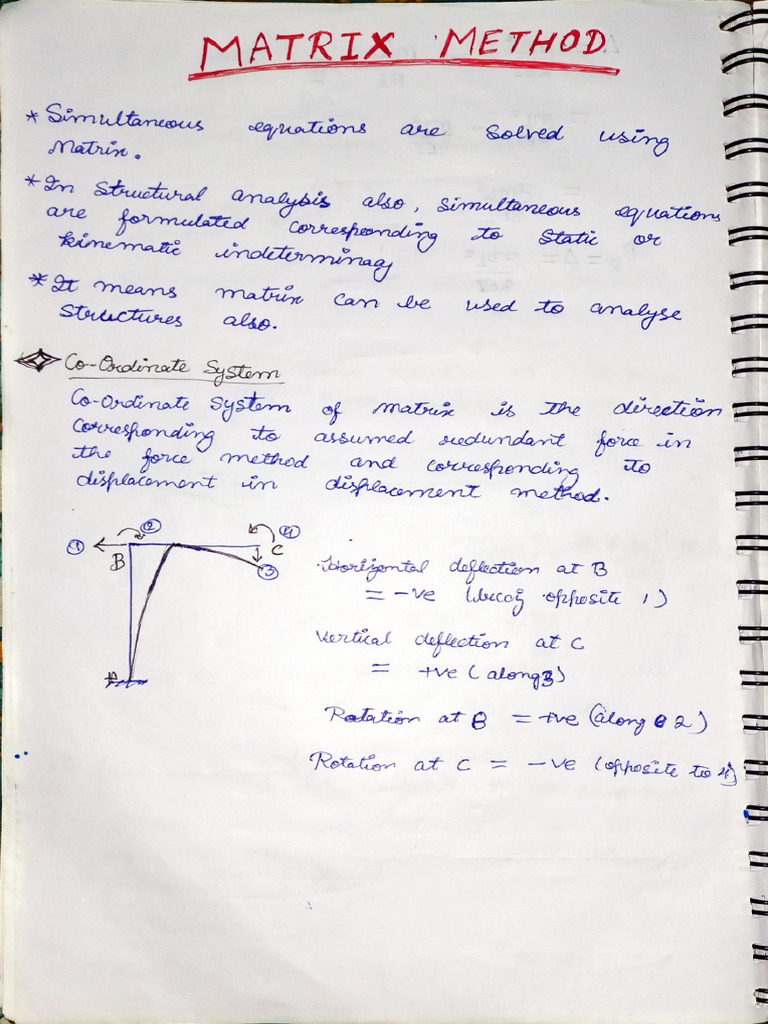 MATRIX METHOD
* Simultaneous equations are solved using
Matrix.
* In Structural analysis also, simultaneous equations
are formulated corresponding to static or
kinematic indeterminacy
* It means matrix can be used to analyse
structures also.
Co-Ordinate System
Co-Ordinate System of matrix is the direction
corresponding to assumed redundant force in
the force method and corresponding to
displacement in displacement method.
① ② B ④ C ③
Horizontal deflection at B
= -ve (becoz opposite 1)
Vertical deflection at C
= +ve (along 3)
Rotation at B = +ve (along 2)
Rotation at C = -ve (opposite to 4)